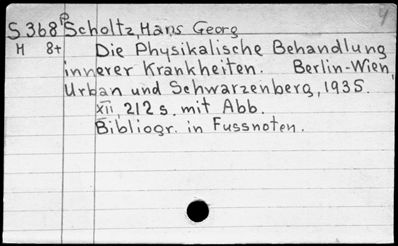 S368 Scholtz, Hans Georg
H 8+ Die Physikalische Behandlung
innerer Krankheiten. Berlin-Wien,
Urban und Schwarzenberg, 1935.
XII, 212 s. mit Abb.
Bibliogr. in Fussnoten.